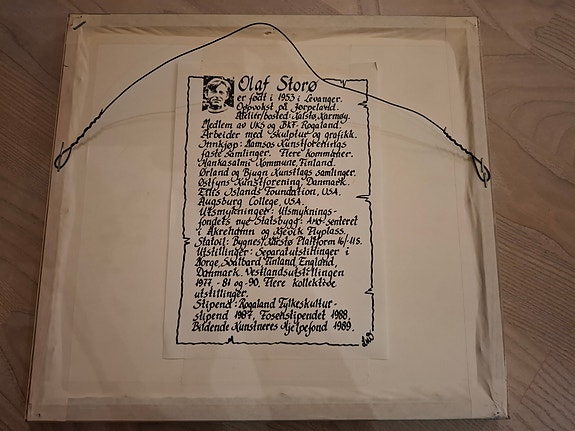 Olaf Storø
er født i 1953 i Levanger.
Oppvokst på Jørpeland.
Atelier/bosted: Kalstø, Karmøy.
Medlem av UKS og BKF Rogaland.
Arbeider med skulptur og grafikk.
Innkjøp: Namsos Kunstforenings
faste samlinger. Flere kommuner.
Hankasalmi Kommune, Finland.
Ørland og Bjugn Kunstlags samlinger.
Østfyns Kunstforening, Danmark.
Ellis Islands Foundation, USA.
Augsburg College, USA.
Utsmykninger: Utsmyknings-
fondets nye Statsbygg: AMO-senteret
i Åkrehamn og Kjevik Flyplass.
Statoil: Bygnes/Kårstø Plattform 16/-11S.
Utstillinger: Separatutstillinger i
Norge, Svalbard, Finland, England,
Danmark. Vestlandsutstillingen
1977, -81 og -90. Flere kollektive
utstillinger.
Stipend: Rogaland Fylkeskultur-
stipend 1987, Fosenstipendet 1988,
Bildende Kunstneres Hjelpefond 1989.